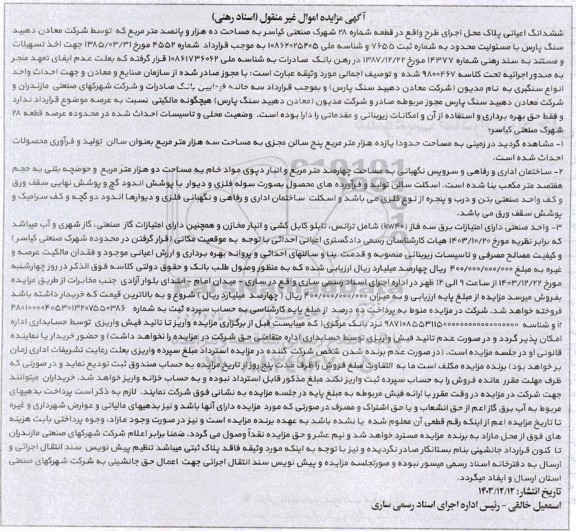 آگهی مزایده اموال غیر منقول (اسناد رهنی)
ششدانگ اعیانی پلاک محل اجرای طرح واقع در قطعه شماره ۲۸ شهرک صنعتی کیاسر به مساحت ده هزار و پانصد متر مربع که توسط شرکت معادن دهبید
سنگ پارس با مسئولیت محدود به شماره ثبت ۷۶۵۵ و شناسه ملی ۱۰۸۶۲۰۲۵۴۰۵ به موجب قرارداد شماره ۴۵۵۲ مورخ ۱۳۸۵/۰۳/۳۱ جهت اخذ تسهیلات
و مستند به سند رهنی شماره ۱۴۳۷۷ مورخ ۱۳۸۷/۱۲/۲۲ در رهن بانک صادرات به شناسه ملی ۱۰۸۶۱۷۳۶۰۶۲ قرار گرفته که بعلت عدم ایفای تعهد منجر
به صدور اجرائیه تحت کلاسه ۹۸۰۰۴۶۷ شده و توصیف اجمالی مورد وثیقه عبارت است: با مجوز صادر شده از سازمان صنایع و معادن و جهت احداث واحد
انواع سنگبری به نام مدیون (شرکت معادن دهبید سنگ پارس) و بموجب قرارداد سه جانبه فی مابین بانک صادرات و شرکت شهرکهای صنعتی مازندران و
شرکت معادن دهبید سنگ پارس مجوز مربوطه صادر و شرکت مدیون (معادن دهبید سنگ پارس) هیچگونه مالکیتی نسبت به عرصه موضوع قرارداد ندارد
و فقط حق بهره برداری و استفاده از آن و امکانات زیربنائی و مقدماتی را دارا بوده است. وضعیت محلی و تاسیسات احداث شده در محدوده عرصه قطعه ۲۸
شهرک صنعتی کیاسر:
۱- مشاهده گردید در زمینی به مساحت حدودا یازده هزار متر مربع پنج سالن مجزی به مساحت سه هزار متر مربع بعنوان سالن تولید و فرآوری محصولات
احداث شده است.
۲- ساختمان اداری و رفاهی و سرویس نگهبانی به مساحت چهارصد متر مربع و انبار دپوی مواد خام به مساحت دو هزار متر مربع و حوضچه بتنی به حجم
هفتصد متر مکعب بنا شده است. اسکلت سالن تولید و فرآورده های محصول بصورت سوله فلزی و دیوار با پوشش اندود گچ و پوشش نهایی سقف ورق
و کف واحد صنعتی بتن و درب و پنجره از نوع فلزی می باشد و اسکلت ساختمان اداری و رفاهی و نگهبانی فلزی و دیوارها اندود دو گچ و کف سرامیک و
پوشش سقف ورق می باشد.
۳- واحد صنعتی دارای امتیازات برق سه فاز (kw۴۰) شامل ترانس، تابلو کابل کشی و انبار مخازن و همچنین دارای امتیازات گاز صنعتی، گاز شهری و آب میباشد
که برابر نظریه مورخ ۱۴۰۳/۱۰/۲۰ هیات کارشناسان رسمی دادگستری اعیانی احداثی با توجه به موقعیت مکانی (قرار گرفتن در محدوده شهرک صنعتی کیاسر)
و کیفیت مصالح مصرفی و تاسیسات زیربنائی منصوبه و قدمت بنا و سالنهای احداثی و پروانه بهره برداری و ارزش اعیانی موجود و فقدان مالکیت عرصه و
غیره به مبلغ ۴۰۰/۰۰۰/۰۰۰/۰۰۰ ریال چهارصد میلیارد ریال ارزیابی شده که به منظور وصول طلب بانک و حقوق دولتی کلاسه فوق الذکر در روز چهارشنبه
مورخ ۱۴۰۳/۱۲/۲۲ از ساعت ۹ الی ۱۲ ظهر در اداره اجرای اسناد رسمی ساری واقع در ساری - میدان امام - ابتدای بلوار آزادی جنب مخابرات از طریق مزایده
بفروش میرسد مزایده از مبلغ پایه ارزیابی و به میزان ۴۰۰/۰۰۰/۰۰۰/۰۰۰ ریال (چهارصد میلیارد ریال) شروع و به بالاترین قیمت که خریدار داشته باشد
فروخته خواهد شد. شرکت در مزایده منوط به پرداخت ده درصد از مبلغ پایه کارشناسی به حساب سپرده ثبت به شماره
ir و شناسه نزد بانک مرکزی) که میبایست قبل از برگزاری مزایده واریز تا تائید فیش واریزی توسط حسابداری اداره
امکان پذیر گردد و در صورت عدم تائید فیش واریزی توسط حسابداری اداره متقاضی حق شرکت در مزایده را نخواهد داشت) و حضور خریدار یا نماینده
قانونی او در جلسه مزایده است. (در صورت عدم برنده شدن شخص شرکت کننده در مزایده استرداد مبلغ سپرده واریزی بعلت رعایت تشریفات اداری زمان
بر خواهد بود) برنده مزایده مکلف است ما به التفاوت مبلغ فروش را ظرف مدت پنج روز از تاریخ مزایده به حساب صندوق ثبت تودیع نماید و در صورتی که
ظرف مهلت مقرر مانده فروش را به حساب سپرده ثبت واریز نکند مبلغ مذکور قابل استرداد نبوده و به حساب خزانه واریز خواهد شد. خریداران میتوانند
جهت شرکت در مزایده در وقت مقرر با ارائه فیش مربوطه به مبلغ پایه در جلسه مزایده به نشانی فوق شرکت نمایند. لازم به ذکر است پرداخت بدهیهای
مربوط به آب برق گاز اعم از حق انشعاب و یا حق اشتراک و مصرف در صورتی که مورد مزایده دارای آنها باشد و نیز بدهیهای مالیاتی و عوارض شهرداری و غیره
تا تاریخ مزایده اعم از اینکه رقم قطعی آن معلوم شده یا نشده باشد به عهده برنده مزایده است و نیز در صورت وجود مازاد، وجوه پرداختی بابت هزینه
های فوق از محل مازاد به برنده مزایده مسترد خواهد شد و نیم عشر و حق مزایده نقداً وصول می گردد. ضمنا برابر اعلام شرکت شهرکهای صنعتی مازندران
تا کنون قرارداد جانشینی بنام بستانکار صادر نگردیده و نیز با توجه به اینکه مورد وثیقه فاقد پلاک ثبتی میباشد تنظیم پیش نویس سند انتقال اجرائی و
ارسال به دفترخانه اسناد رسمی میسور نبوده و صورتجلسه مزایده و پیش نویس سند انتقال اجرائی جهت اعمال حق جانشینی به شرکت شهرکهای صنعتی
استان ارسال و ایفاد میگردد.
تاریخ انتشار: ۱۴۰۳/۱۲/۱۲
اسمعیل خالقی - رئیس اداره اجرای اسناد رسمی ساری